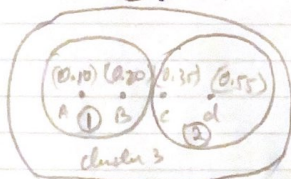 (0.10) (0.20) (0.35) (0.55)
A B c d
① ②
cluster 3